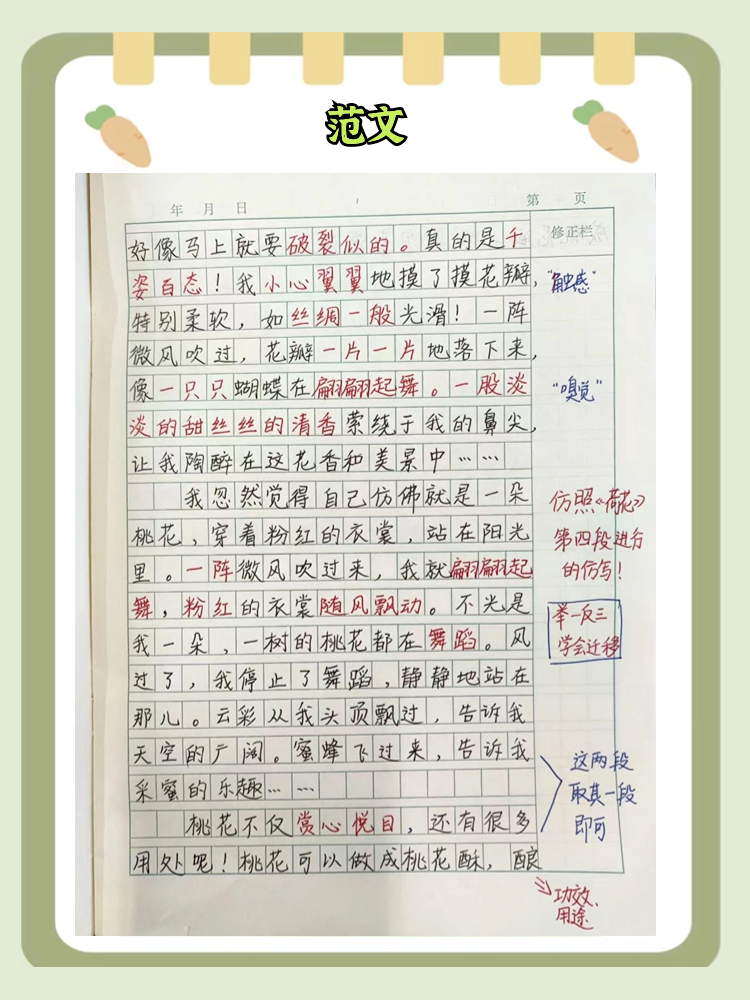 范文
年 月 日
第 页
修正栏
好像马上就要破裂似的。真的是千
姿百态！我小心翼翼地摸了摸花瓣，
"触感"
特别柔软，如丝绸一般光滑！一阵
微风吹过，花瓣一片一片地落下来，
像一只只蝴蝶在翩翩起舞。一股淡
"嗅觉"
淡的甜丝丝的清香萦绕于我的鼻尖，
让我陶醉在这花香和美景中……
我忽然觉得自己仿佛就是一朵
仿照《荷花》
桃花，穿着粉红的衣裳，站在阳光
第四段进行
里。一阵微风吹过来，我就翩翩起
的仿写！
舞，粉红的衣裳随风飘动。不光是
举一反三
我一朵，一树的桃花都在舞蹈。风
学会迁移
过了，我停止了舞蹈，静静地站在
那儿。云彩从我头顶飘过，告诉我
天空的广阔。蜜蜂飞过来，告诉我
这两段
采蜜的乐趣……
取其一段
桃花不仅赏心悦目，还有很多
即可
用处呢！桃花可以做成桃花酥，酿
功效、
用途